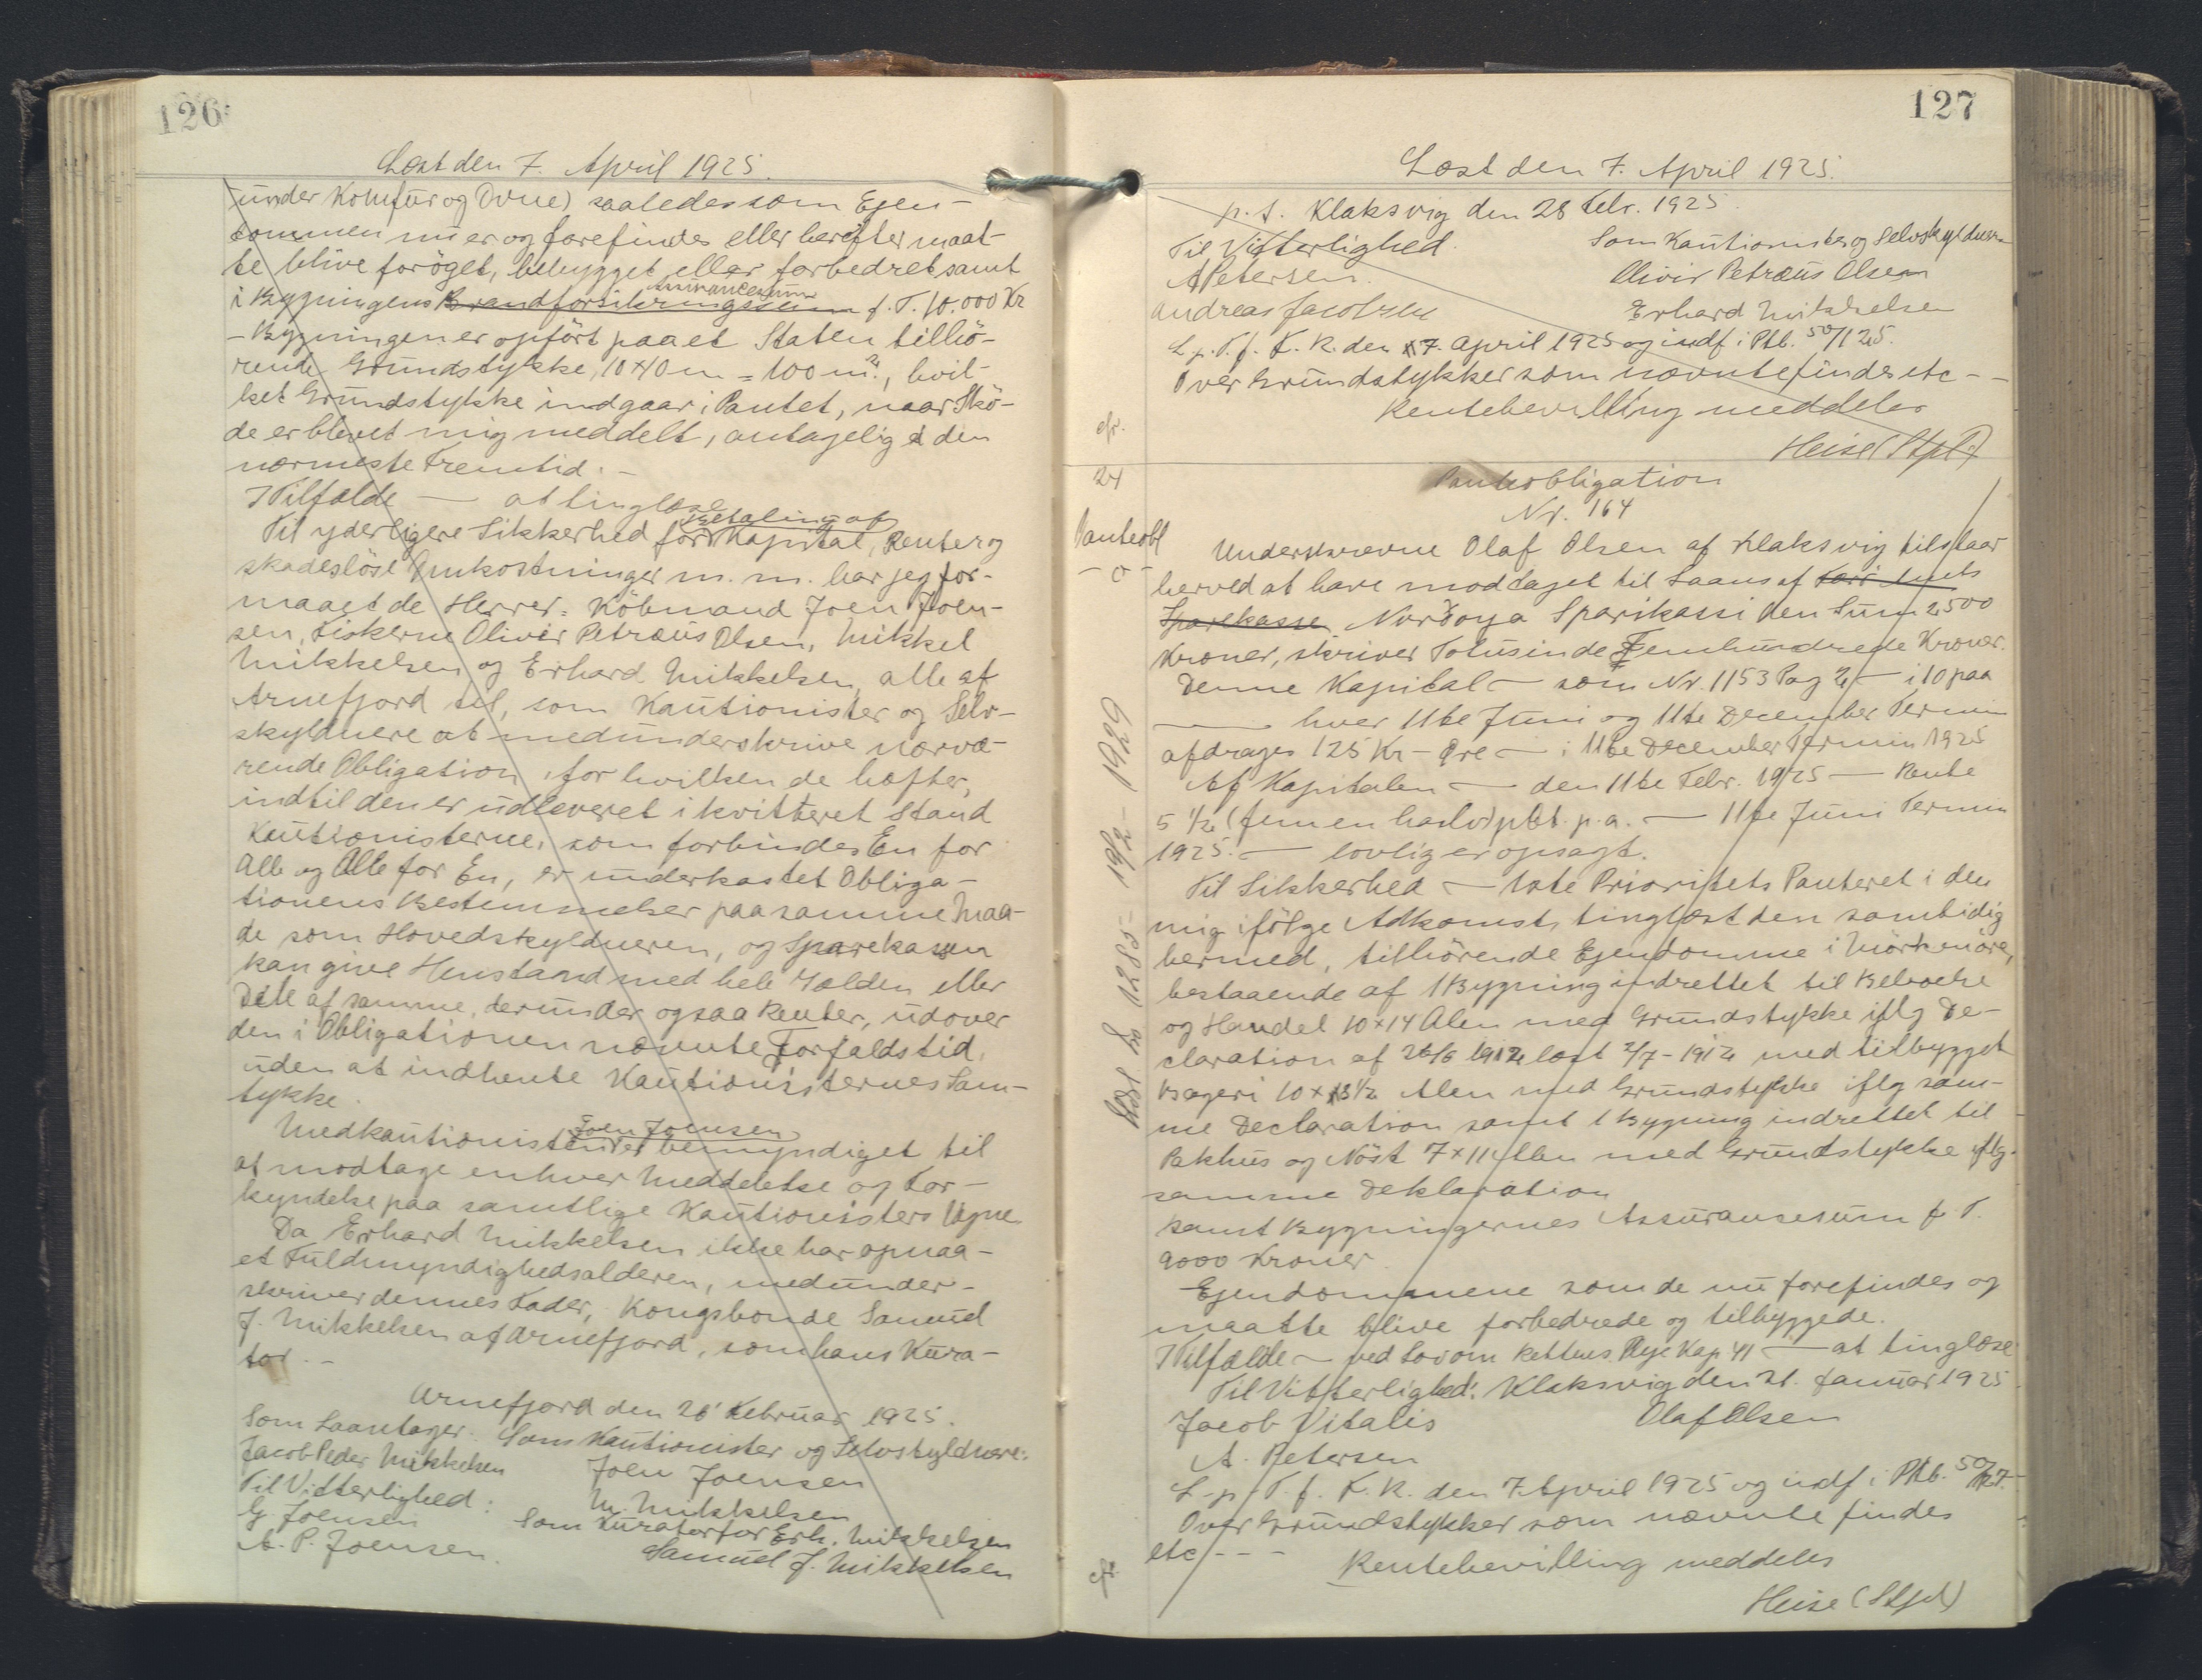 126
Læst den 7. April 1925.
under Komfur og Ovne) saaledes som Ejen-
dommen nu er og forefindes eller herefter maat-
te blive forøget, bebygget eller forbedret samt
assurancesum
i Bygningens Brandforsikringssum f. T. 10.000 Kr
- Bygningen er opført paa et Staten tilhö-
rende Grundstykke, 10 x 10 m = 100 m², hvil-
ket Grundstykke indgaar i Pantet, naar Skö-
de er blevet mig meddelt, antagelig i den
nærmeste Fremtid. -
I Tilfælde — at tinglæse
Betaling af
Til yderligere Sikkerhed for Kapital, Renter og
skadeslöse Omkostninger m. m. har jeg for-
maaet de Herrer: Köbmand Joen Joen-
sen, Fiskerne Olivir Petræus Olsen, Mikkel
Mikkelsen og Erhard Mikkelsen, alle af
Arnefjord til, som Kautionister og Selv-
skyldnere at medunderskrive nærvæ-
rende Obligation, for hvilken de hæfter,
indtil den er udleveret i kvitteret Stand
Kautionisterne, som forbindes En for
Alle og Alle for En, er underkastet Obliga-
tionens Bestemmelser paa samme Maa-
de som Hovedskyldneren, og Sparekassen
kan give Henstand med hele Gælden eller
Dele af samme, derunder ogsaa Renter, udover
den i Obligationen nævnte Forfaldstid,
uden at indhente Kautionisternes Sam-
tykke.
Joen Joensen
Medkautionisten er bemyndiget til
at modtage enhver Meddelelse og For-
kyndelse paa samtlige Kautionisters Vegne
Da Erhard Mikkelsen ikke har opnaa-
et Fuldmyndighedsalderen, medunder-
skriver dennes Fader, Kongsbonde Samuel
J. Mikkelsen af Arnefjord, som hans Kura-
tor. -
Arnefjord den 26' Februar 1925.
Som Laantager. Som Kautionister og Selvskyldnere:
Jacob Peder Mikkelsen Joen Joensen
Til Vitterlighed: M. Mikkelsen
G. Joensen Som Kurator for Erh. Mikkelsen
A. P. Joensen. Samuel J. Mikkelsen
127
Læst den 7. April 1925.
p. t. Klaksvig den 28 Febr. 1925
Til Vitterlighed. Som Kautionister og Selvskyldnere
A Petersen. Olivir Petræus Olsen
Andreas Jacobsen Erhard Mikkelsen
L. p. T. f. F. R. den 7. April 1925 og indf. i Ptb. 50/125.
Over Grundstykker som nævnte findes etc - -
Rentebevilling meddeles
Heise (Stpl.)
24
Panteobligation
Nr. 164
Panteobl
- 0 -
Underskrevne Olaf Olsen af Klaksvig tilstaar
herved at have modtaget til Laans af Færö Amts
Sparekasse Norðoya Sparikassi den Sum 2500
Kroner, skriver Totusinde Femhundrede Kroner.
Denne Kapital — som Nr. 1153 Pag 2 — i 10 paa
— hver 11te Juni og 11te December Termin
afdrages 125 Kr - Øre — i 11te December Termin 1925
Af Kapitalen — den 11te Febr. 1925 — Rente
5 1/2 (fem en halv) pCt. p. a. — 11te Juni Termin
1925. — lovlig er opsagt.
Til Sikkerhed — 1ste Prioritets Panteret i den
mig ifölge Adkomst, tinglæst den samtidig
hermed, tilhörende Ejendomme i Mörkenöre,
bestaaende af 1 Bygning indrettet til Beboelse
og Handel 10 x 14 Alen med Grundstykke iflg De-
claration af 26/6 1912 læst 2/7 - 1912 med tilbygget
Bageri 10 x 13 1/2 Alen med Grundstykke iflg sam-
me Declaration samt 1 Bygning indrettet til
Pakhus og Nöst 7 x 11 Alen med Grundstykke iflg.
samme Deklaration
samt Bygningernes Assurancesum f. T.
9000 Kroner.
Ejendommene som de nu forefindes og
maatte blive forbedrede og tilbyggede.
I Tilfælde — ved Lov om Rettens Pleje Kap 41 — at tinglæse
Til Vitterlighed: Klaksvig den 21. Januar 1925
Jacob Vitalis Olaf Olsen
A. Petersen
L. p. T. f. F. R. den 7. April 1925 og indf. i Ptb. 50/127.
Over Grundstykker som nævnte findes
etc - - -
Rentebevilling meddeles
Heise (Stpl)